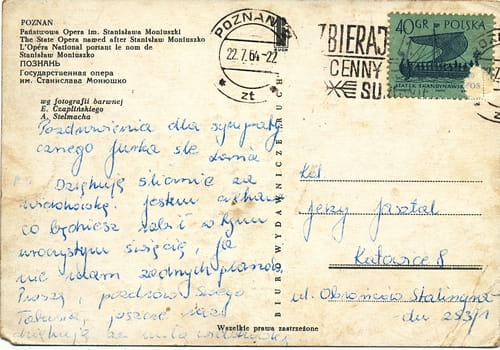 POZNAŃ
Państwowa Opera im. Stanisława Moniuszki
The State Opera named after Stanisław Moniuszko
L'Opéra National portant le nom de
Stanisław Moniuszko
ПОЗНАНЬ
Государственная опера
им. Станислава Монюшко
wg fotografii barwnej
E. Czaplińskiego
A. Stelmacha
POZNAŃ
22.7.64-22
* zt *
ZBIERAJ
CENNY
SU
40 GR POLSKA
STATEK SKANDYNAWSKI
BIURO WYDAWNICZE „RUCH”
Pozdrowienia dla sympaty
cznego Jurka śle
Dziękuję ślicznie za
widokówkę. Jestem ciekawa
co będziesz robił w tym
uroczystym święcie, ja
nie mam żadnych planów.
Proszę, pozdrów swego
jeszcze raz
dziękuję za miłą widokówkę
Ob.
Jerzy
Katowice 8
ul. Obrońców Stalingradu
283/1
Wszelkie prawa zastrzeżone